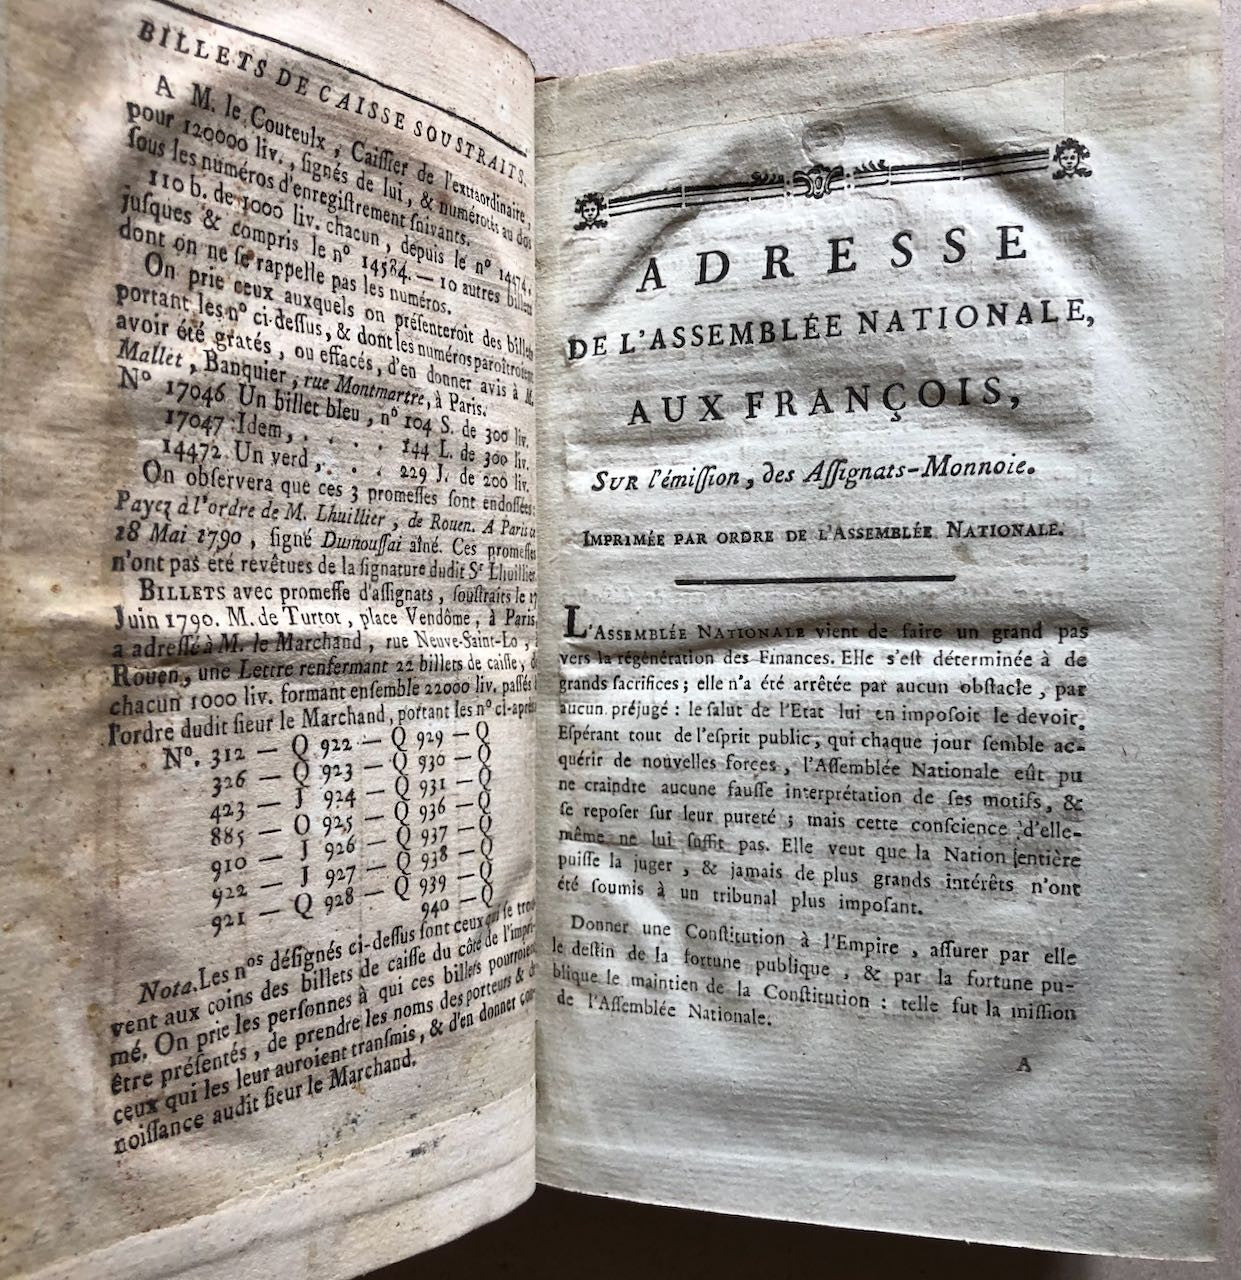 BILLETS DE CAISSE SOUSTRAITS.
A M. le Couteulx, Caiſſier de l'extraordinaire,
pour 120000 liv., ſignés de lui, & numérotés au dos
ſous les numéros d'enregiſtrement ſuivants.
110 b. de 1000 liv. chacun, depuis le n° 14474,
juſques & compris le n° 14584. — 10 autres billets
dont on ne ſe rappelle pas les numéros.
On prie ceux auxquels on préſenteroit des billets
portant les n° ci-deſſus, & dont les numéros paroîtroient
avoir été gratés, ou effacés, d'en donner avis à M.
Mallet, Banquier, rue Montmartre, à Paris.
N° 17046 Un billet bleu, n° 104 S. de 300 liv.
17047 Idem, . . . . 144 L. de 300 liv.
14472. Un verd, . . . 229 J. de 200 liv.
On obſervera que ces 3 promeſſes ſont endoſſées:
Payez à l'ordre de M. Lhuillier, de Rouen. A Paris ce
18 Mai 1790, ſigné Dumouſſai aîné. Ces promeſſes
n'ont pas été revêtues de la ſignature dudit Sr Lhuillier.
BILLETS avec promeſſe d'aſſignats, ſouſtraits le 17
Juin 1790. M. de Turtot, place Vendôme, à Paris,
a adreſſé à M. le Marchand, rue Neuve-Saint-Lo,
Rouen, une Lettre renfermant 22 billets de caiſſe, de
chacun 1000 liv. formant enſemble 22000 liv. paſſés
l'ordre dudit ſieur le Marchand, portant les n° ci-après
N°. 312 — Q 922 — Q 929 — Q
326 — Q 923 — Q 930 — Q
423 — J 924 — Q 931 — Q
885 — O 925 — Q 936 — Q
910 — J 926 — Q 937 — Q
922 — J 927 — Q 938 — Q
921 — Q 928 — Q 939 — Q
940 — Q
Nota. Les nos déſignés ci-deſſus ſont ceux qui ſe trou-
vent aux coins des billets de caiſſe du côté de l'impri-
mé. On prie les perſonnes à qui ces billets pourroient
être préſentés, de prendre les noms des porteurs & de
ceux qui les leur auroient tranſmis, & d'en donner con-
noiſſance audit ſieur le Marchand.
ADRESSE
DE L'ASSEMBLÉE NATIONALE,
AUX FRANÇOIS,
SUR l'émiſſion, des Aſſignats-Monnoie.
IMPRIMÉE PAR ORDRE DE L'ASSEMBLÉE NATIONALE.
L'ASSEMBLÉE NATIONALE vient de faire un grand pas
vers la régénération des Finances. Elle s'eſt déterminée à de
grands ſacrifices; elle n'a été arrêtée par aucun obſtacle, par
aucun préjugé: le salut de l'Etat lui en impoſoit le devoir.
Eſpérant tout de l'eſprit public, qui chaque jour ſemble ac-
quérir de nouvelles forces, l'Aſſemblée Nationale eût pu
ne craindre aucune fauſſe interprétation de ſes motifs, &
ſe repoſer ſur leur pureté; mais cette conſcience d'elle-
même ne lui ſuffit pas. Elle veut que la Nation entière
puiſſe la juger, & jamais de plus grands intérêts n'ont
été ſoumis à un tribunal plus impoſant.
Donner une Conſtitution à l'Empire, aſſurer par elle
le deſtin de la fortune publique, & par la fortune pu-
blique le maintien de la Conſtitution: telle fut la miſſion
de l'Aſſemblée Nationale.
A